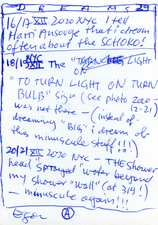 DREAMS 29
16/17 XII 2020 NYC I tell
Harri Ansorge that i dream
often about the SCHOKO!
18/19 XII The "TURN LIGHT ON
"TO TURN LIGHT ON TURN
BULB" sign (see photo 2020-
12-21)
was not there – (instead of
dreaming "BIG" i dream of
this minuscule stuff!!!)
20/21 XII 2020 NYC – THE shower
head "sprayed" water beyond
my shower "wall" (at 319!)
– minuscule again!!!
A